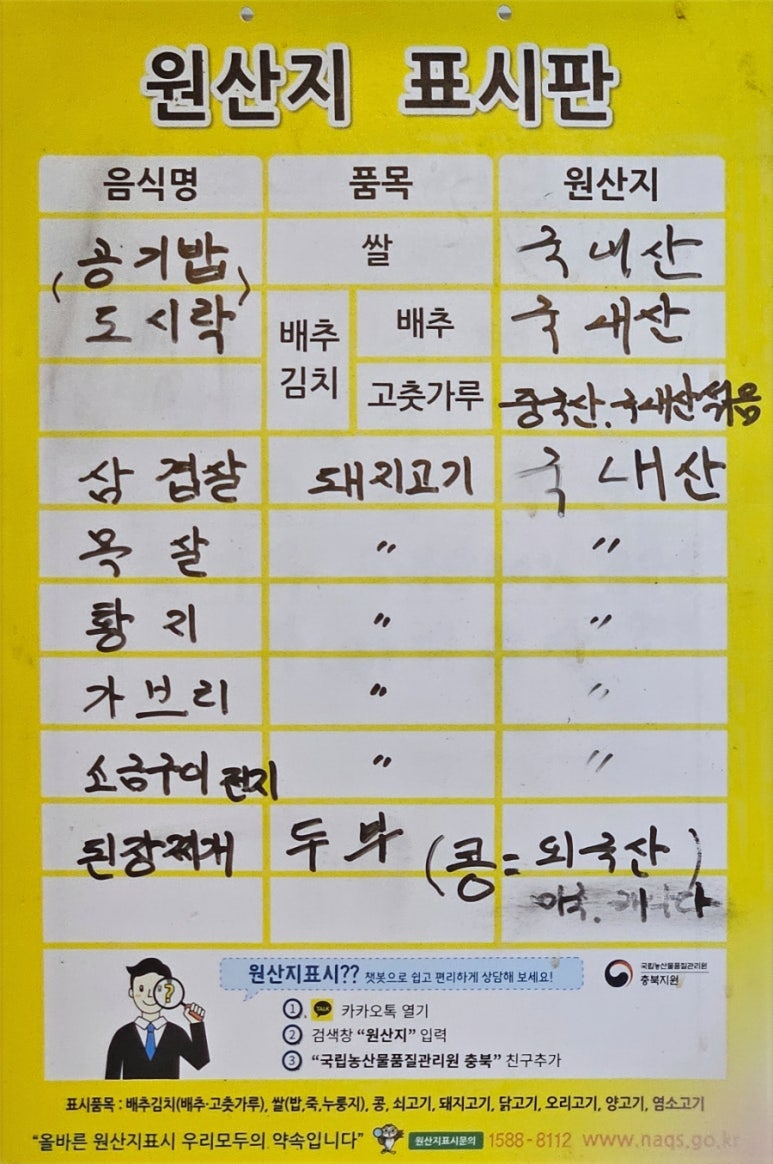 원산지 표시판
음식명 품목 원산지
(공기밥) 쌀 국내산
도시락 배추김치 배추 국내산
고춧가루 중국산.국내산섞음
삼겹살 돼지고기 국내산
목살 〃 〃
황지 〃 〃
가브리 〃 〃
소금구이 전지 〃 〃
된장찌개 두부 (콩=외국산)
미국.캐나다
원산지표시?? 챗봇으로 쉽고 편리하게 상담해 보세요!
국립농산물품질관리원
충북지원
1. TALK 카카오톡 열기
2 검색창 “원산지” 입력
3 “국립농산물품질관리원 충북” 친구추가
표시품목 : 배추김치(배추·고춧가루), 쌀(밥,죽,누룽지), 콩, 쇠고기, 돼지고기, 닭고기, 오리고기, 양고기, 염소고기
“올바른 원산지표시 우리모두의 약속입니다” 원산지표시문의 1588-8112 www.naqs.go.kr